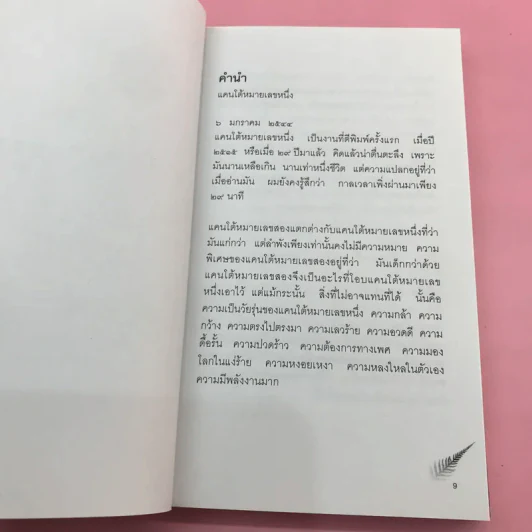 คำนำ
แคนโต้หมายเลขหนึ่ง
๖ มกราคม ๒๕๔๔
แคนโต้หมายเลขหนึ่ง เป็นงานที่ตีพิมพ์ครั้งแรก เมื่อปี
๒๕๑๕ หรือเมื่อ ๒๙ ปีมาแล้ว คิดแล้วน่าตื่นตะลึง เพราะ
มันนานเหลือเกิน นานเท่าหนึ่งชีวิต แต่ความแปลกอยู่ที่ว่า
เมื่ออ่านมัน ผมยังคงรู้สึกว่า กาลเวลาเพิ่งผ่านมาเพียง
๒๙ นาที
แคนโต้หมายเลขสองแตกต่างกับแคนโต้หมายเลขหนึ่งที่ว่า
มันแก่กว่า แต่ลำพังเพียงเท่านั้นคงไม่มีความหมาย ความ
พิเศษของแคนโต้หมายเลขสองอยู่ที่ว่า มันเด็กกว่าด้วย
แคนโต้หมายเลขสองจึงเป็นอะไรที่โอบแคนโต้หมายเลข
หนึ่งเอาไว้ แต่แม้กระนั้น สิ่งที่ไม่อาจแทนที่ได้ นั่นคือ
ความเป็นวัยรุ่นของแคนโต้หมายเลขหนึ่ง ความกล้า ความ
กว้าง ความตรงไปตรงมา ความเลวร้าย ความอวดดี ความ
ดื้อรั้น ความปวดร้าว ความต้องการทางเพศ ความมอง
โลกในแง่ร้าย ความหงอยเหงา ความหลงใหลในตัวเอง
ความมีพลังงานมาก
9